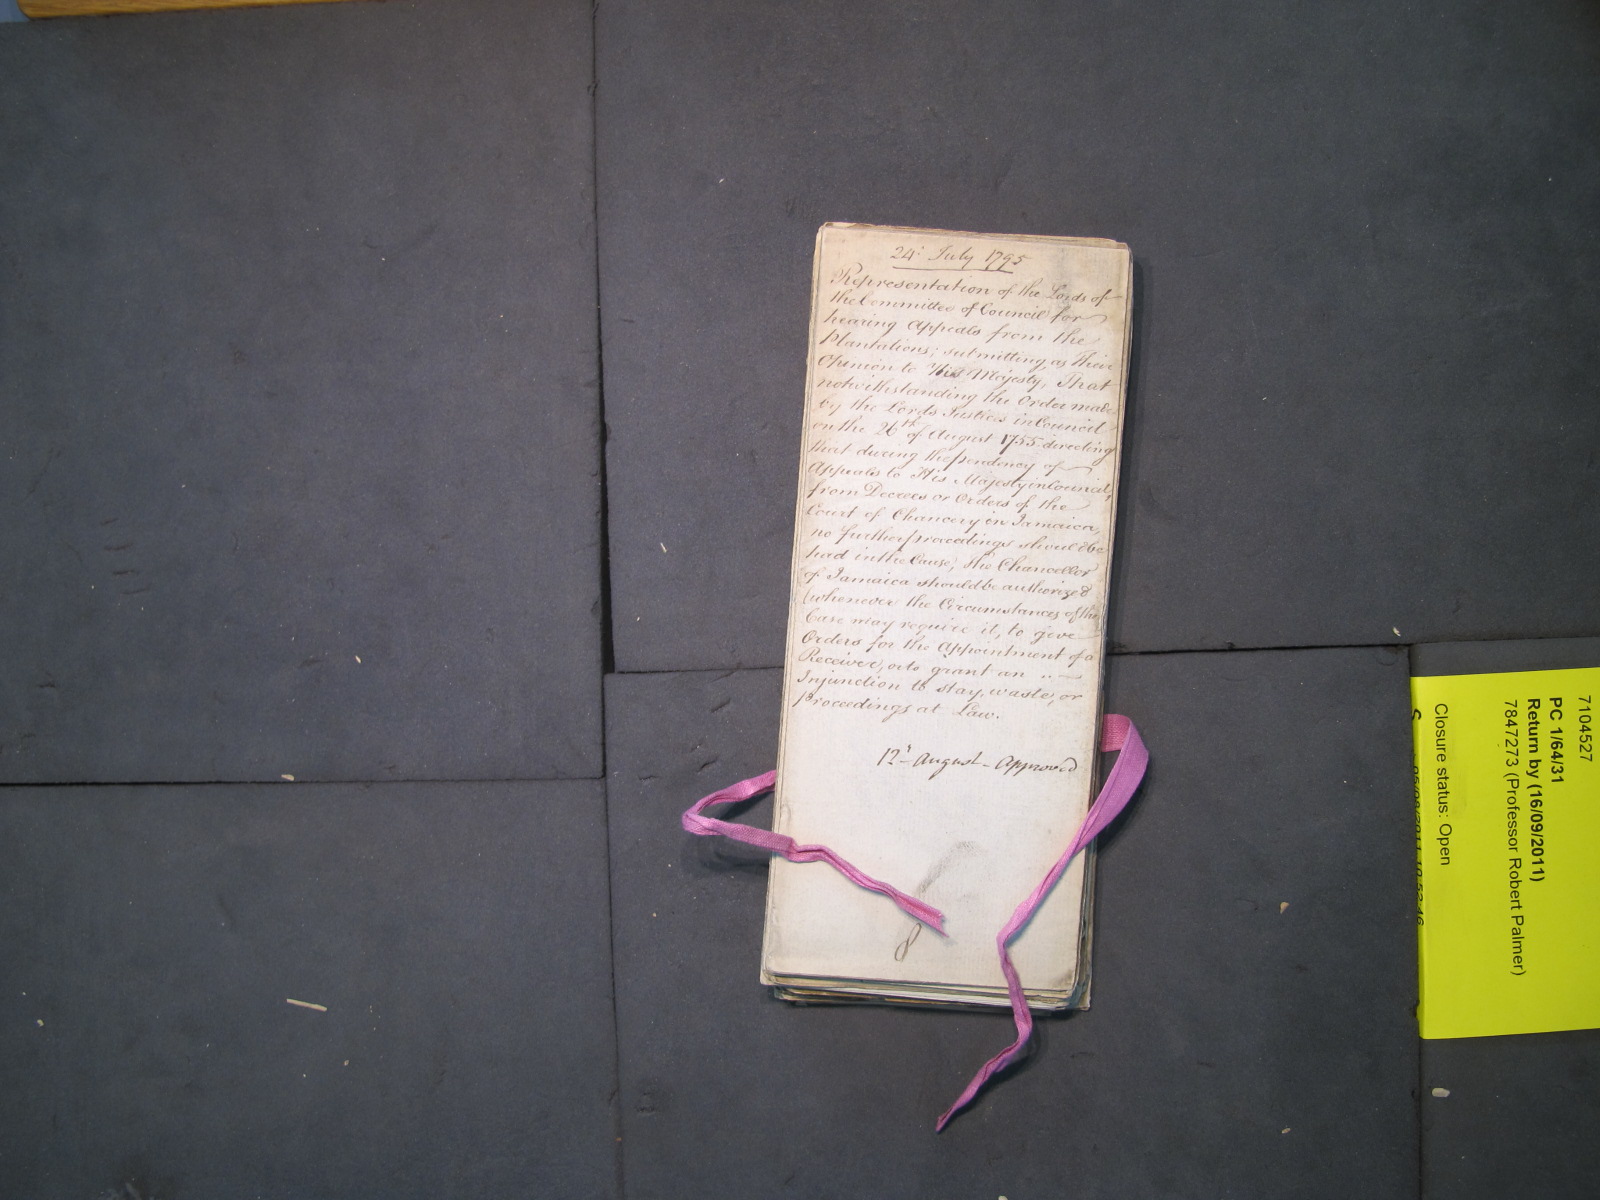 24: July 1795
Representation of the Lords of
the Committee of Council for
hearing Appeals from the
Plantations; submitting as Their
Opinion to His Majesty, That
notwithstanding the Order made
by the Lords Justices in Council
on the 26th of August 1755 directing
that during the pendency of
Appeals to His Majesty in Council,
from Decrees or Orders of the
Court of Chancery in Jamaica,
no further proceedings should be
had in the Cause, the Chancellor
of Jamaica should be authorized
(whenever the Circumstances of the
Case may require it, to give
Orders for the Appointment of a
Receiver, or to grant an
Injunction to stay, waste, or
Proceedings at Law.
12th August - Approved
8
7104527
PC 1/64/31
Return by (16/09/2011)
7847273 (Professor Robert Palmer)
Closure status: Open